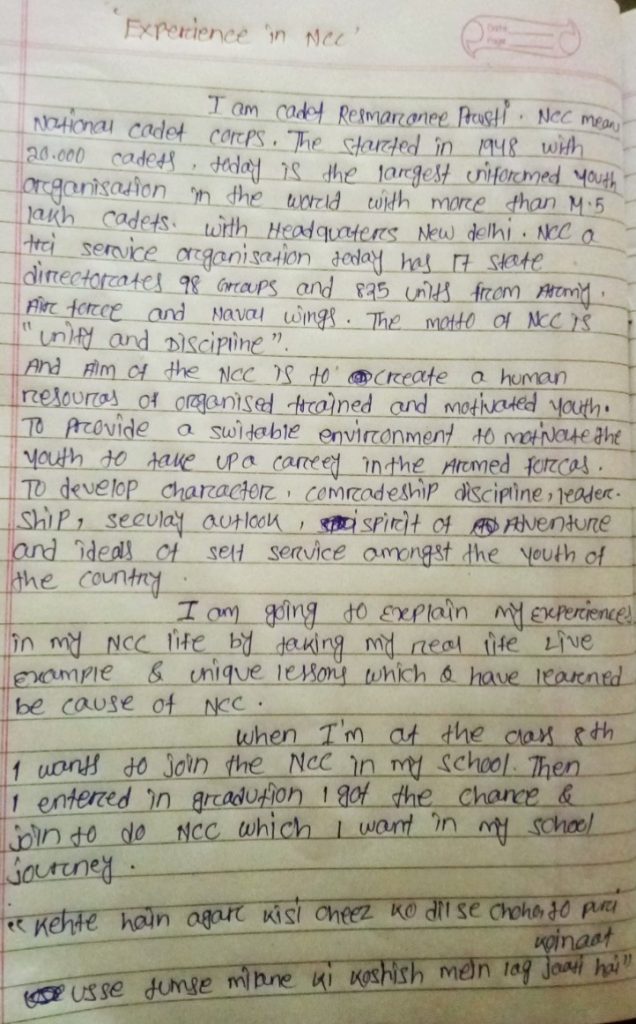 'Experience in NCC'
Date
Page
I am cadet Resmaranee Prusti. NCC mean
National cadet corps. The started in 1948 with
20.000 cadets, today is the largest uniformed youth
organisation in the world with more than M.5
lakh cadets. with Headquaters New delhi. NCC a
tri service organisation today has 17 state
directorates 98 Groups and 825 units from Army.
Air force and Naval wings. The motto of NCC is
"unity and Discipline".
And Aim of the NCC is to create a human
resources of organised trained and motivated youth.
To Provide a suitable environment to motivate the
youth to take up a career in the Armed forcas.
To develop character, comradeship discipline, leader-
ship, secular outlook, spirit of Adventure
and ideals of self service amongst the youth of
the country.
I am going to explain my experiences
in my NCC life by taking my real life Live
example & unique lessons which & have learned
be cause of NCC.
when I'm at the class 8th
I wants to join the NCC in my school. Then
I entered in gradution I got the chance &
join to do NCC which I want in my school
journey.
"Kehte hain agar kisi cheez ko dil se chaho to puri
kainaat
usse tumse milane ki koshish mein lag jaati hai"